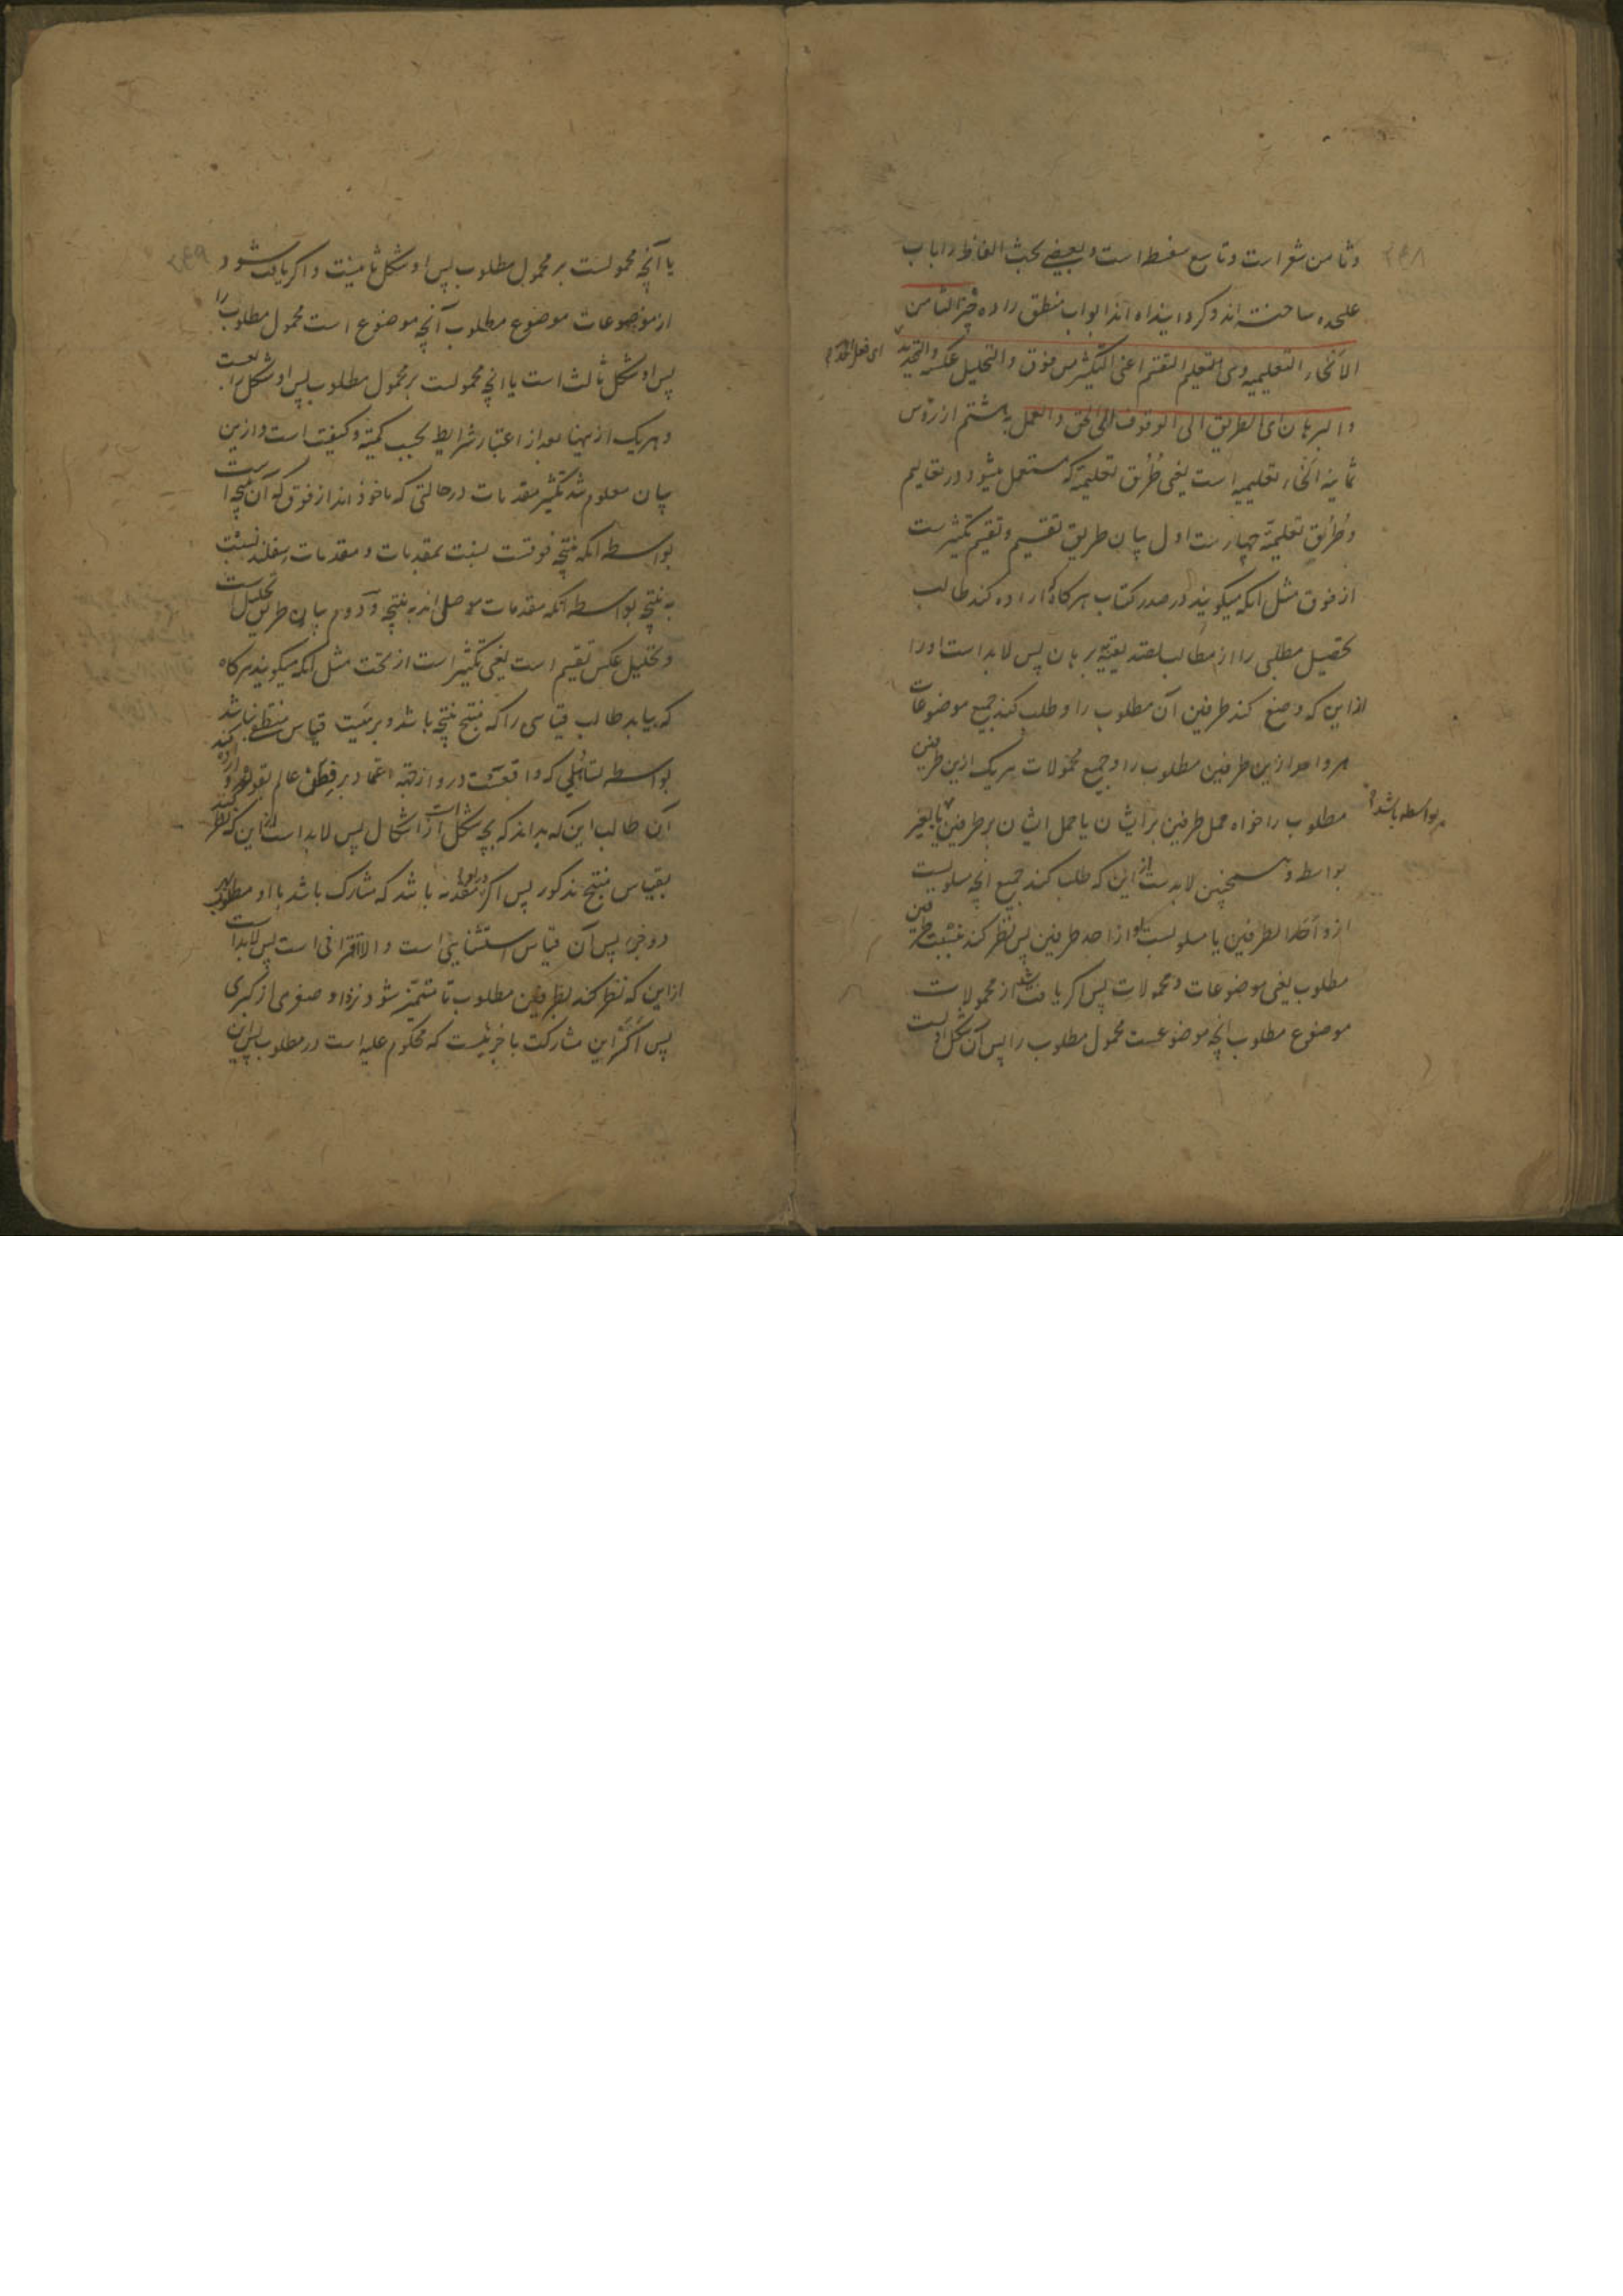 ۲۶۸
وثامن شعر است وتاسع سفسطه است وبعضی بحث الفاظ را باب
علیحده ساخته اند وکردانیده اند ابواب منطق را ده خبر الثامن
الانحاء التعلیمیه وهی التعلیم التقسیم اعنی التکثیر من فوق والتحلیل عکسه والتحدید
ای فعل الحد
والبرهان ای الطریق الی الوقوف علی الحق والعمل به هشتم از رؤس
ثمانیه انحاء تعلیمیه است یعنی طُرُق تعلیمیه که مستعمل میشود در تعالیم
وطُرُق تعلیمیه چهارست اول بیان طریق تقسیم وتقسیم تکثیرست
از فوق مثل انکه میکویند در صدر کتاب هرکاه که اراده کند طالب
تحصیل مطلبی را از مطالب تصدیقیه ببرهان پس لابد است اورا
ازاین که وضع کند طرفین آن مطلوب را وطلب کند جمیع موضوعات
هر واحد ازین طرفین مطلوب را وجمیع محمولات هریک ازین طرفین
مطلوب را خواه حمل طرفین بر ایشان یا حمل ایشان بر طرفین یا بغیر
بواسطه باشد
بواسطه وهمچنین لابدست از این که طلب کند جمیع انچه مسلوبست
ازو احد الطرفین یا مسلوبست او از احد طرفین پس نظر کند نسبت طرفین
مطلوب یعنی موضوعات ومحمولات پس اکر یافت شد از محمولات
موضوع مطلوب انچه موضوعست محمول مطلوب را پس آن شکل اولست
۲۶۹
یا آنچه محمولست بر محمول مطلوب پس او شکل ثانیست واکر یافت شود
از موضوعات موضوع مطلوب آنچه موضوع است محمول مطلوب را
پس او شکل ثالث است یا انچه محمولست بر محمول مطلوب پس او شکل رابعست
وهریک ازینها بعد از اعتبار شرایط بحسب کمیة وکیفیت است وازین
بیان معلوم شد تکثیر مقدمات درحالتی که ماخوذ اند از فوق که آن نتیجه است
بواسطه انکه نتیجه فوقست نسبت بمقدمات ومقدمات سفلند نسبت
به نتیجه بواسطه انکه مقدمات موصل اند به نتیجه ودوم بیان طریق تحلیل است
وتحلیل عکس تقسیم است یعنی تکثیر است از تحت مثل انکه میکویند هرکاه
که بیابد طالب قیاسی را که منتج نتیجه باشد وبر هیئت قیاس منطقی نباشد
بواسطه تساهلی که واقعست درو از جهة اعتماد بر فطن عالم بقواعد واراده کند
آن طالب این که بداند که بچه شکل است از اشکال پس لابد است از این که نظر کند
بقیاس منتج مذکور پس اکر درو مقدمه باشد که مشارک باشد با او مطلوب
دو جزء پس آن قیاس استثنایی است والا اقترانی است پس لابد است
ازاین که نظر کند بطرفین مطلوب تا متمیّز شود نزد او صغری از کبری
پس اکر این مشارکت با جزئیست که محکوم علیه است در مطلوب پس این